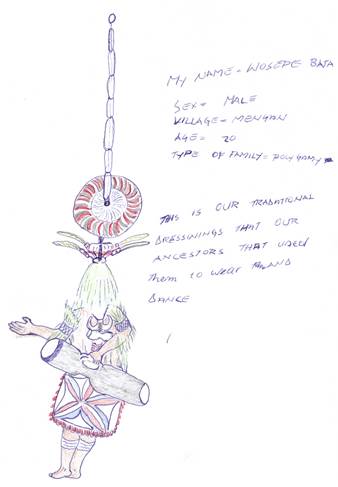 MY NAME = WOSEPE BAJA
SEX = MALE
VILLAGE = MENGAN
AGE = 20
TYPE OF FAMILY = POLYGAMY
THIS IS OUR TRADITIONAL
DRESSININGS THAT OUR
ANCESTORS THAT USED
THEM TO WEAR AND
DANCE